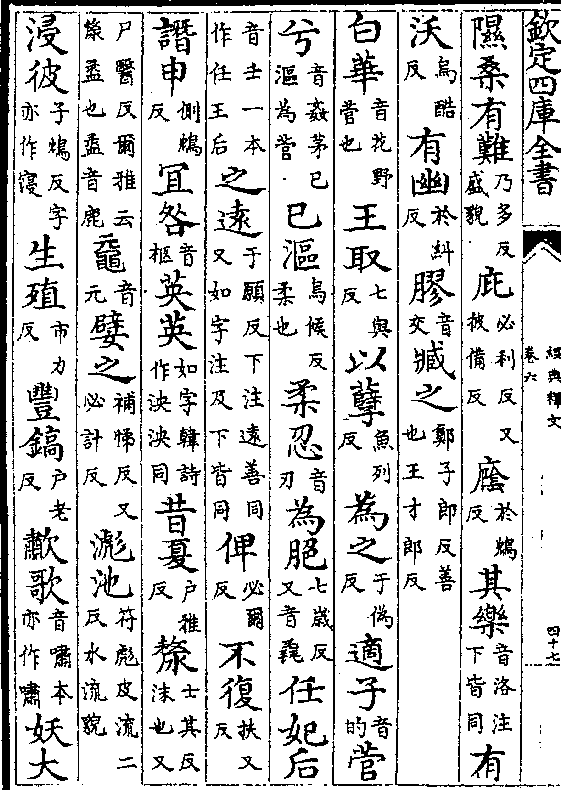 欽定四庫全書
經典釋文
卷六
四十七
隰桑有難乃多反盛貌庇必利反又彼備反廕於鴆反其樂音洛注下皆同有
沃烏酷反有幽於糾反膠音交臧之鄭子郎反善也王才郎反
白華音花野菅也王取七與反以孽魚列反為之于偽反適子音的菅
兮音姦茅已漚為菅已漚烏候反柔也柔忍音刃為脃七歲反又音毳任妃后
音壬一本作任王后之遠于願反下注遠善同又如字注及下皆同俾必爾反不復扶又反
譖申側鴆反冝咎音柩英英如字韓詩作泱泱同昔夏户雅反漦士其反沬也又
尸醫反爾雅云漦盝也盝音鹿黿音元嬖之補悌反又必計反滮池符彪皮流二反水流貌
浸彼子鴆反字亦作寖生殖市力反豐鎬户老反歗歌音嘯本亦作嘯妖大